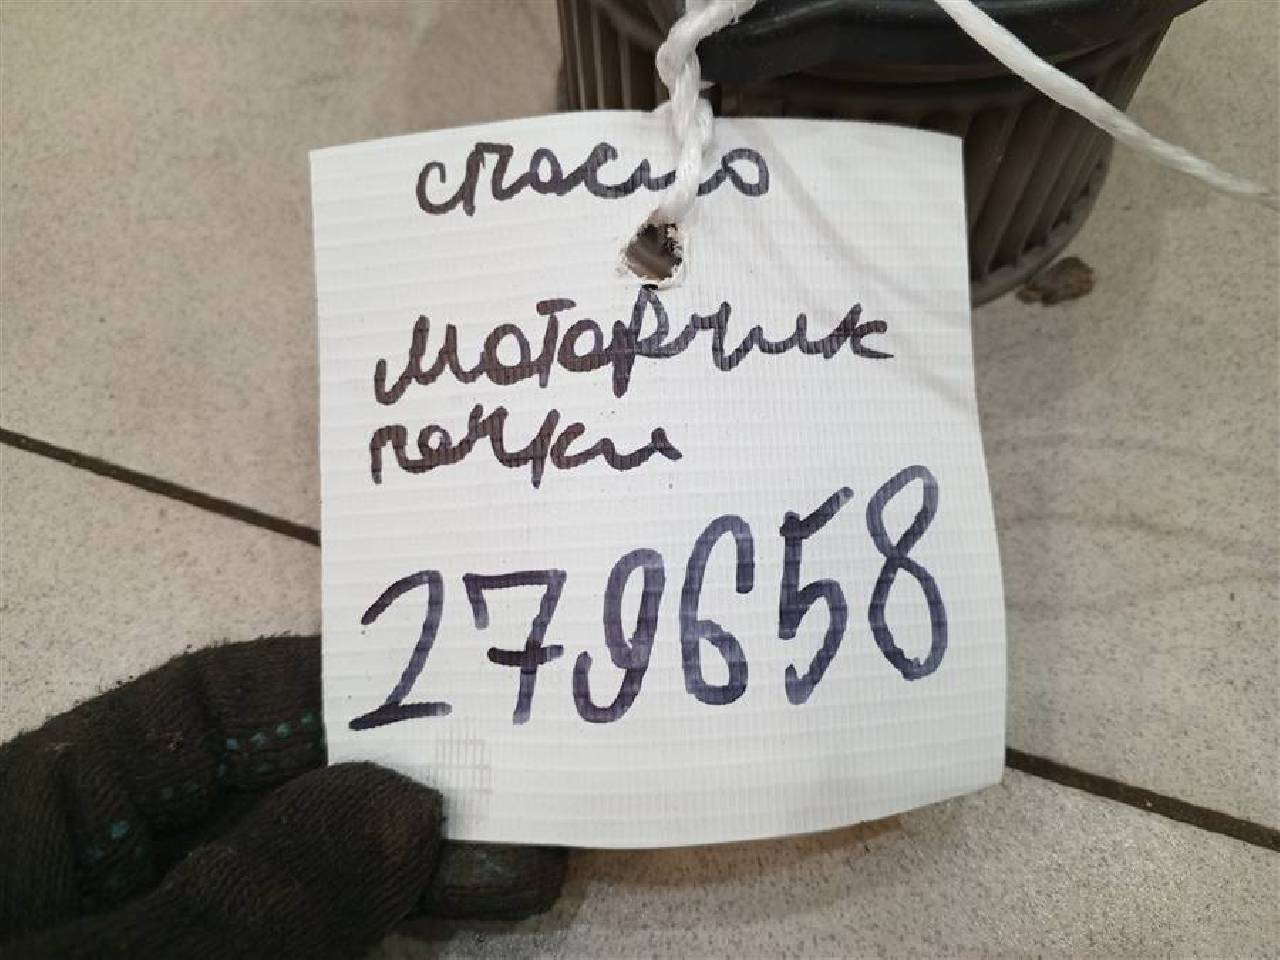 спасио
моторчик
печки
279658